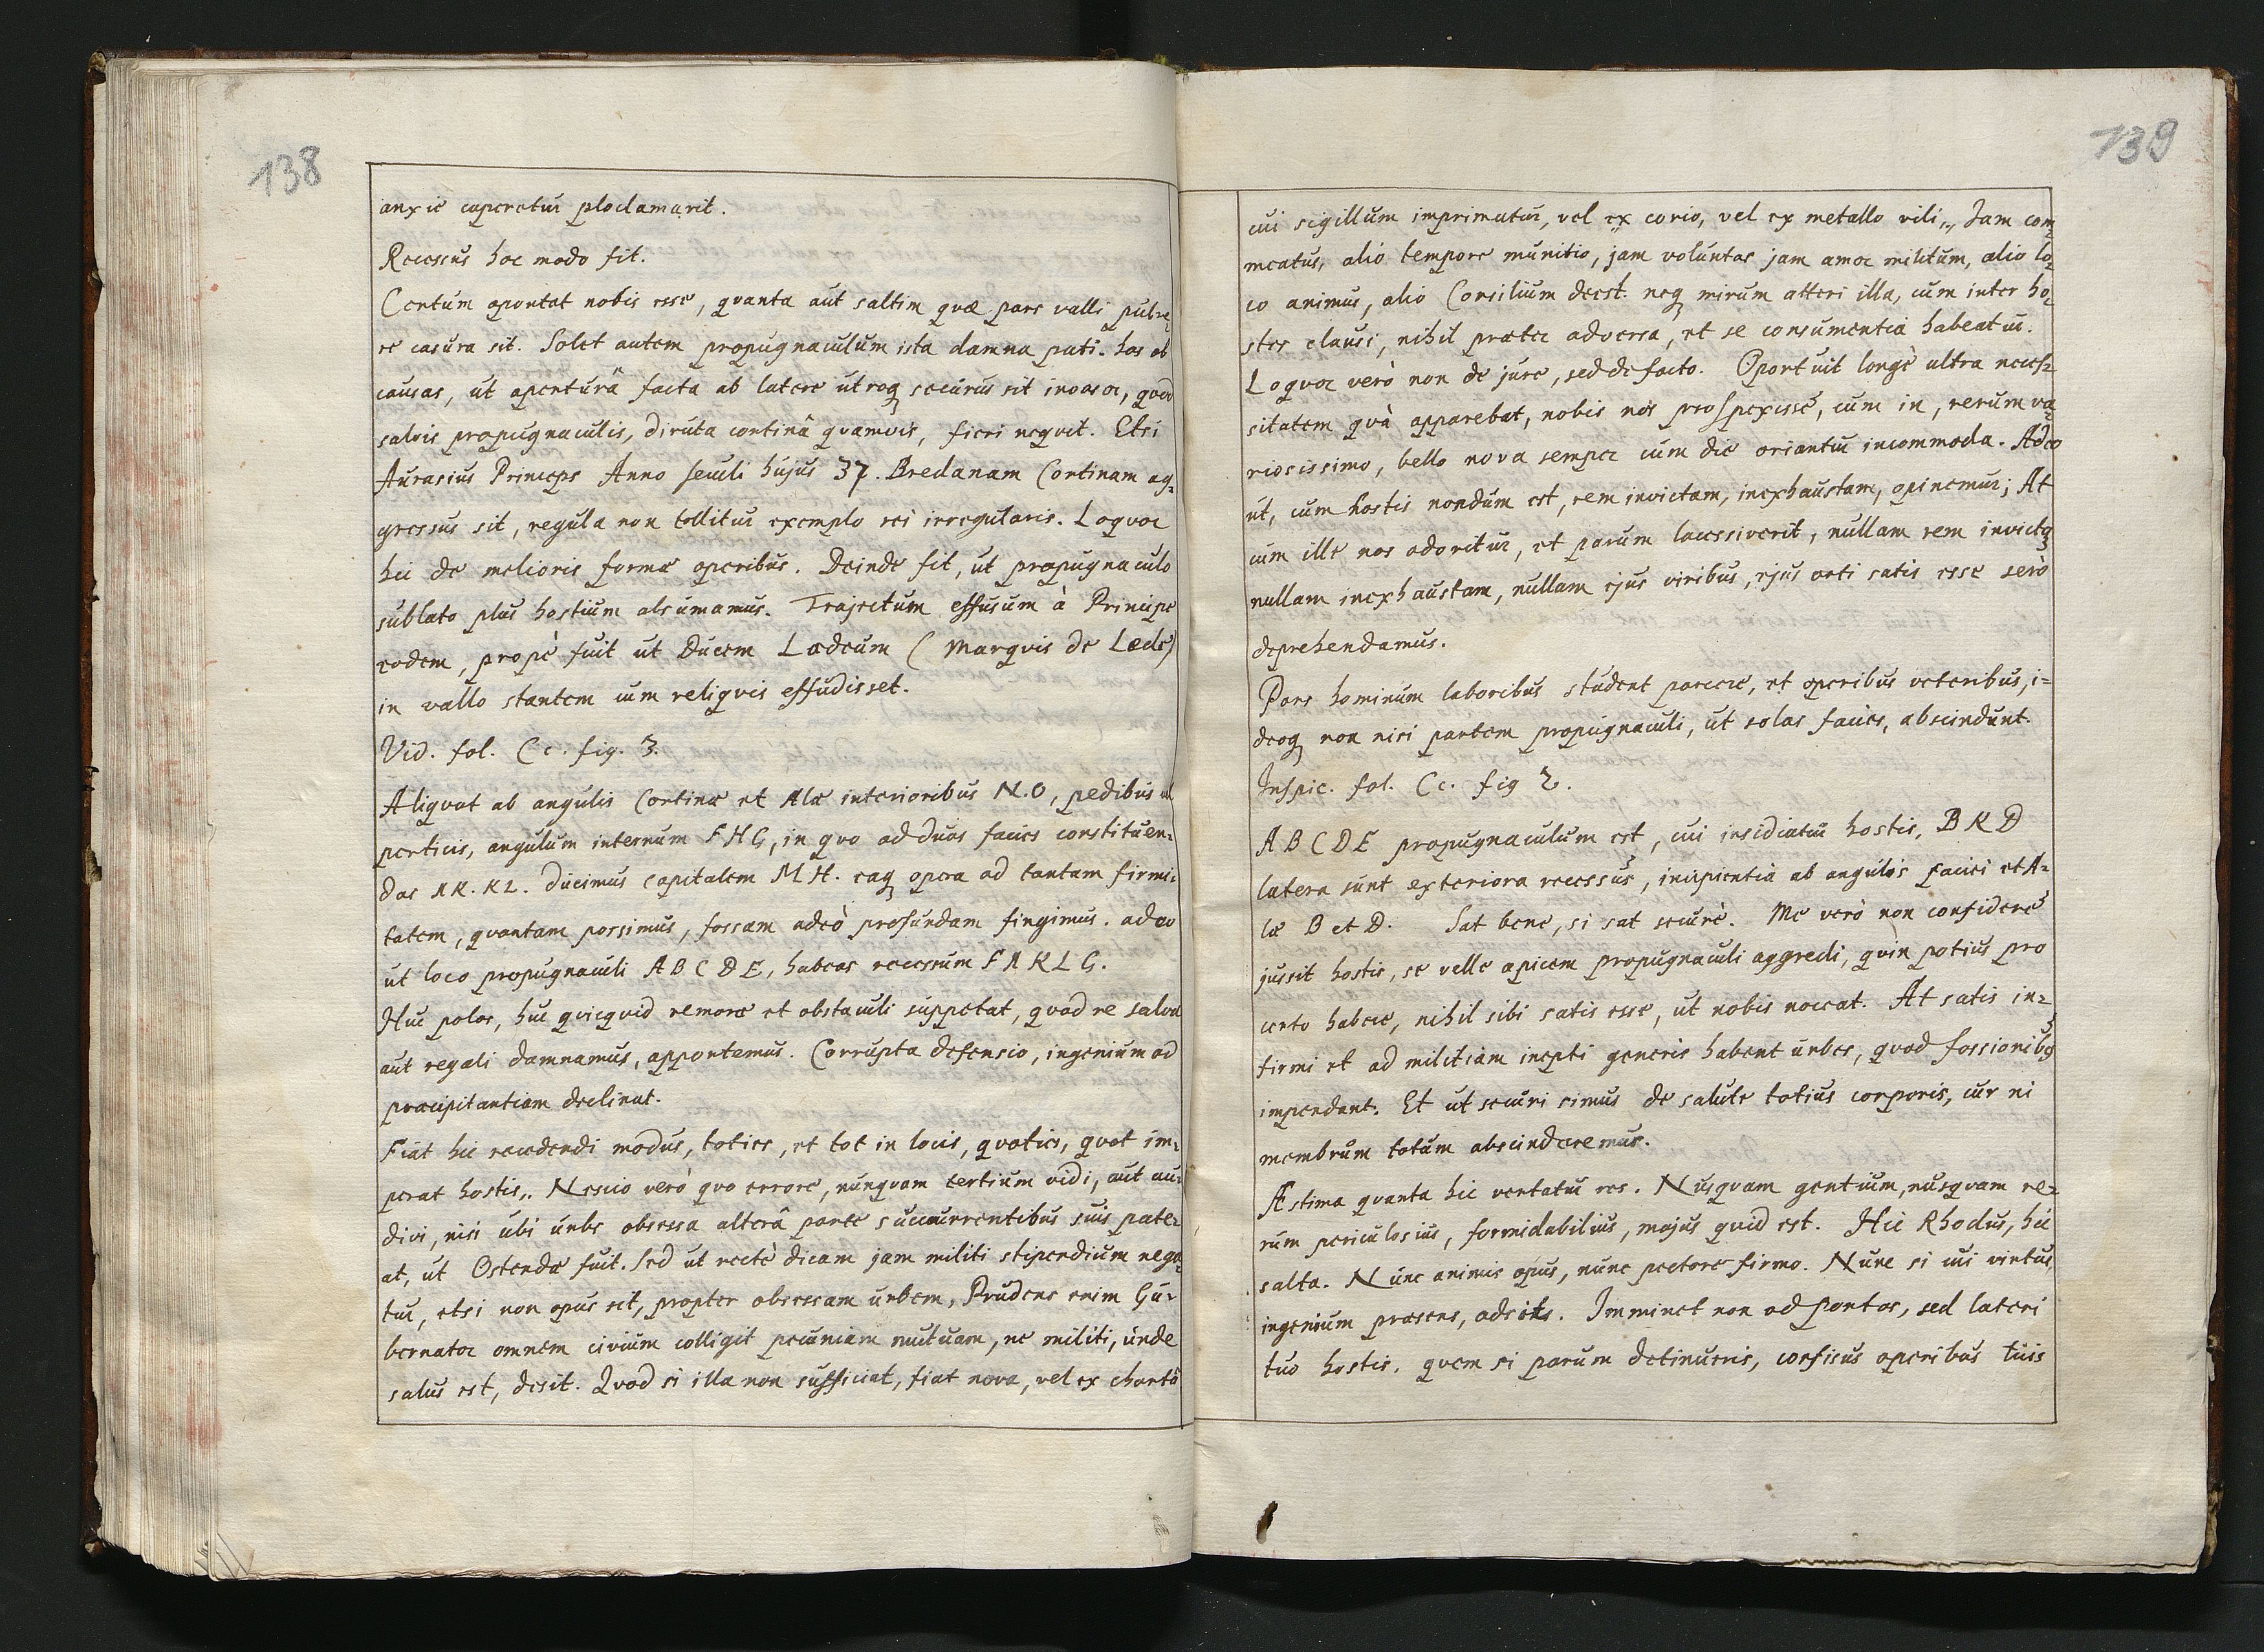 138
anxie caperetur ploclamarit.
Recessus hoc modo fit.
Certum oportet nobis esse, quanta aut saltim quæ pars valli pulve-
re casura sit. Solet autem propugnaculum ista damna pati. has ob
causas, ut aperturâ facta ab latere utroq securus sit invasor, quod
salvis propugnaculis, diruta cortinâ quamvis, fieri nequit. Etsi
Aurasius Princeps Anno seculi hujus 37. Bredanam Cortinam ag-
gressus sit, regula non tollitur exemplo rei irregularis. Loquor
hic de melioris formæ operibus. Deinde fit, ut propugnaculo
sublato plus hostium absumamus. Trajectum effusum à Principe
eodem, propè fuit ut Ducem Lædeum (Marquis de Læde)
in vallo stantem cum reliquis effudisset.
Vid. fol. Cc. fig. 3.
Aliquot ab angulis Cortinæ et Alæ interioribus N.O, pedibus vel
perticis, angulum internum FHG, in quo ad duas facies constituen-
das AK. KL. Ducimus capitalem MH. eaq opera ad tantam firmi-
tatem, quantam possimus, fossam adeò profundam fingimus. adeo
ut loco propugnaculi ABCDE, habeas recessum FAKLG.
Huc palos, huc quicquid remoræ et obstaculi suppetat, quod re salva
aut regali damnamus, apportemus. Corrupta defensio, ingenium ad
præcipitantiam declinat.
Fiat hic recedendi modus, toties, et tot in locis, quoties, quot im-
perat hostis,. Nescio verò quo errore, nunquam tertium vidi, aut au-
divi, nisi ubi urbs obsessa alterâ parte succurrentibus suis pate-
at, ut Ostendæ fuit. Sed ut rectè dicam jam militi stipendium nega-
tur, etsi non opus sit, propter obsessam urbem, Prudens enim Gu-
bernator omnem civium colligit pecuniam mutuam, ne militi, unde
salus est, desit. Quod si illa non sufficiat, fiat nova, vel ex chartâ
139
cui sigillum imprimatur, vel ex corio, vel ex metallo vili,. Jam com-
meatus, alio tempore munitio, jam voluntas jam amor militum, alio lo-
co animus, alio Consilium deest. neq mirum atteri illa, cum inter ho-
stes clausi, nihil præter adversa, et se consumentia habeatur.
Loquor verò non de jure, sed de facto. Oportuit longè ultra neces-
sitatem quà apparebat, nobis nos prospexisse, cum in, rerum va-
riosissimo, bello nova semper cum die oriantur incommoda. Adeo
ut, cum hostis nondum est, rem invictam, inexhaustam, opinemur; At
cum ille nos adoritur, et parum lacessiverit, nullam rem invictã
nullam inexhaustam, nullam ejus viribus, ejus arti satis esse serò
deprehendamus.
Pars hominum laboribus student parcere, et operibus veteribus, i-
deoq non nisi partem propugnaculi, ut solas facies, abscindunt.
Inspic. fol. Cc. fig 2.
ABCDE propugnaculum est, cui insidiatur hostis, BKD
latera sunt exteriora recessus, incipientia ab angulis faciei et A-
læ B et D. Sat bene, si sat securè. Me verò non confidere
jussit hostis, se velle apicem propugnaculi aggredi, quin potius pro
certo habere, nihil sibi satis esse, ut nobis noceat. At satis in-
firmi et ad militiam inepti generis habent urbes, quod fossionibq
impendant. Et ut securi simus de salute totius corporis, cur ni
membrum totum abscinderemus.
Æstima quanta hic vertatur res. Nusquam gentium, nusquam re-
rum periculosius, formidabilius, majus quid est. Hic Rhodus, hic
salta. Nunc animis opus, nunc pectore firmo. Nunc si cui virtus,
ingenium præsens, adsits. Imminet non ad portas, sed lateri
tuo hostis, quem si parum detinueris, confisus operibus tuis